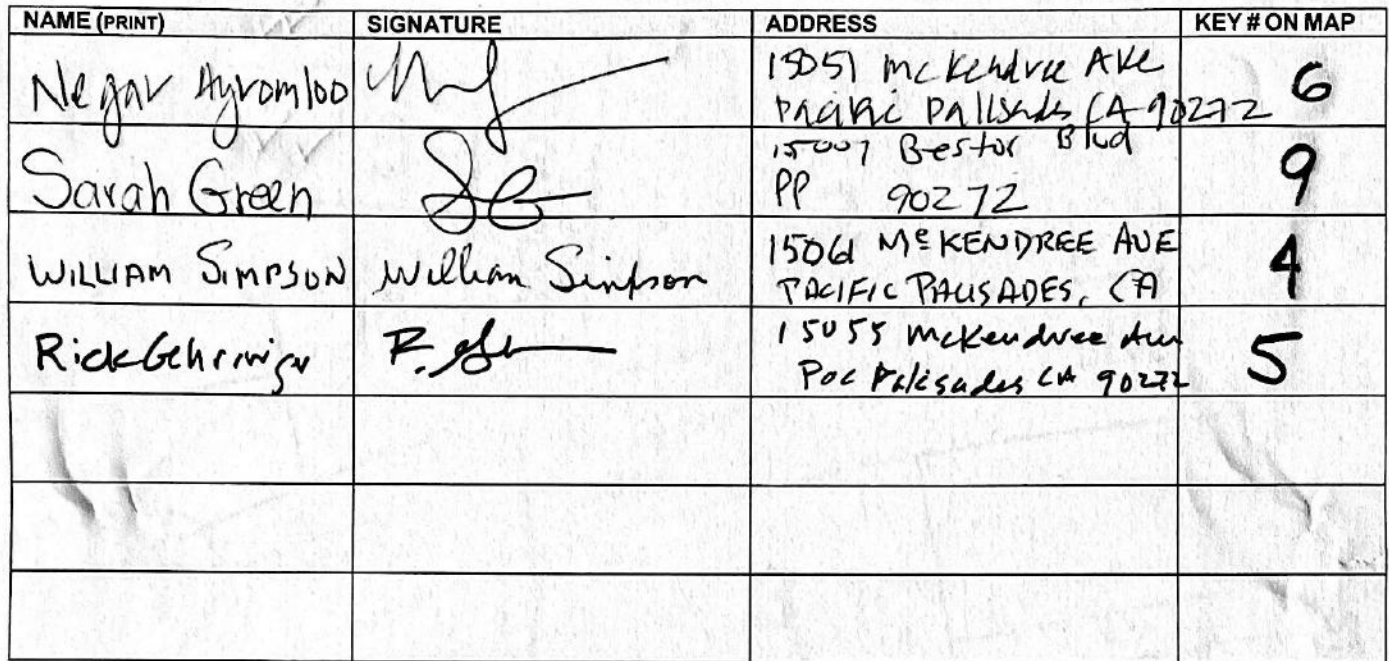 NAME (PRINT) SIGNATURE ADDRESS KEY # ON MAP
Negar Ayromloo 15051 McKendree Ave 6
Pacific Palisades CA 90272
Sarah Green 15007 Bestor Blvd 9
PP 90272
WILLIAM SIMPSON William Simpson 15061 McKENDREE AVE 4
PACIFIC PALISADES, CA
Rick Gehringer R. 15055 McKendree Ave 5
Pac Palisades CA 90272